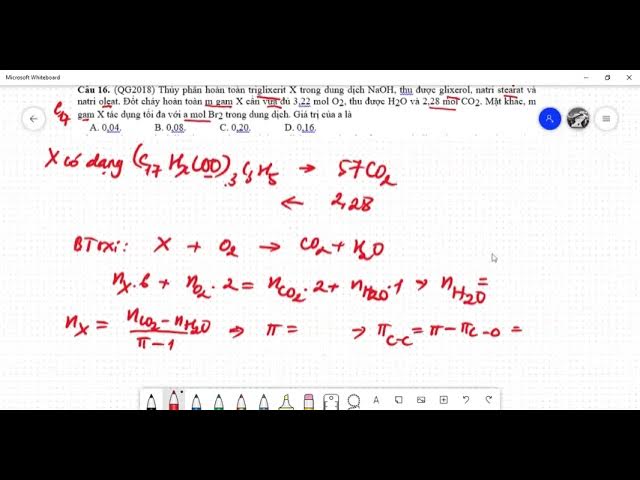 Microsoft Whiteboard
Câu 16. (QG2018) Thủy phân hoàn toàn triglixerit X trong dung dịch NaOH, thu được glixerol, natri stearat và
natri oleat. Đốt cháy hoàn toàn m gam X cần vừa đủ 3,22 mol O2, thu được H2O và 2,28 mol CO2. Mặt khác, m
gam X tác dụng tối đa với a mol Br2 trong dung dịch. Giá trị của a là
A. 0,04. B. 0,08. C. 0,20. D. 0,16.
C17
X có dạng (C17H?COO)3C3H5 → 57CO2
← 2,28
BToxi: X + O2 → CO2 + H2O
nX.6 + nO2.2 = nCO2.2 + nH2O.1 → nH2O =
nX = nCO2 - nH2O / π - 1 ⇒ π = → πC-C = π - πC-O =